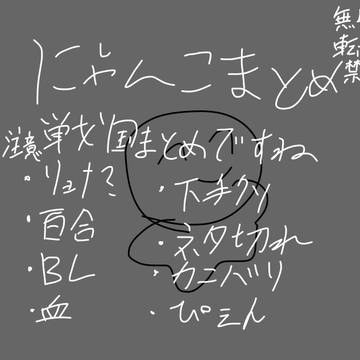 にゃんこまとめ
無断
転
禁
注意 戦国まとめですね
・リョナ?
・百合
・BL
・血
・下手クソ
・ネタ切れ
・カニバリ
・ぴえん